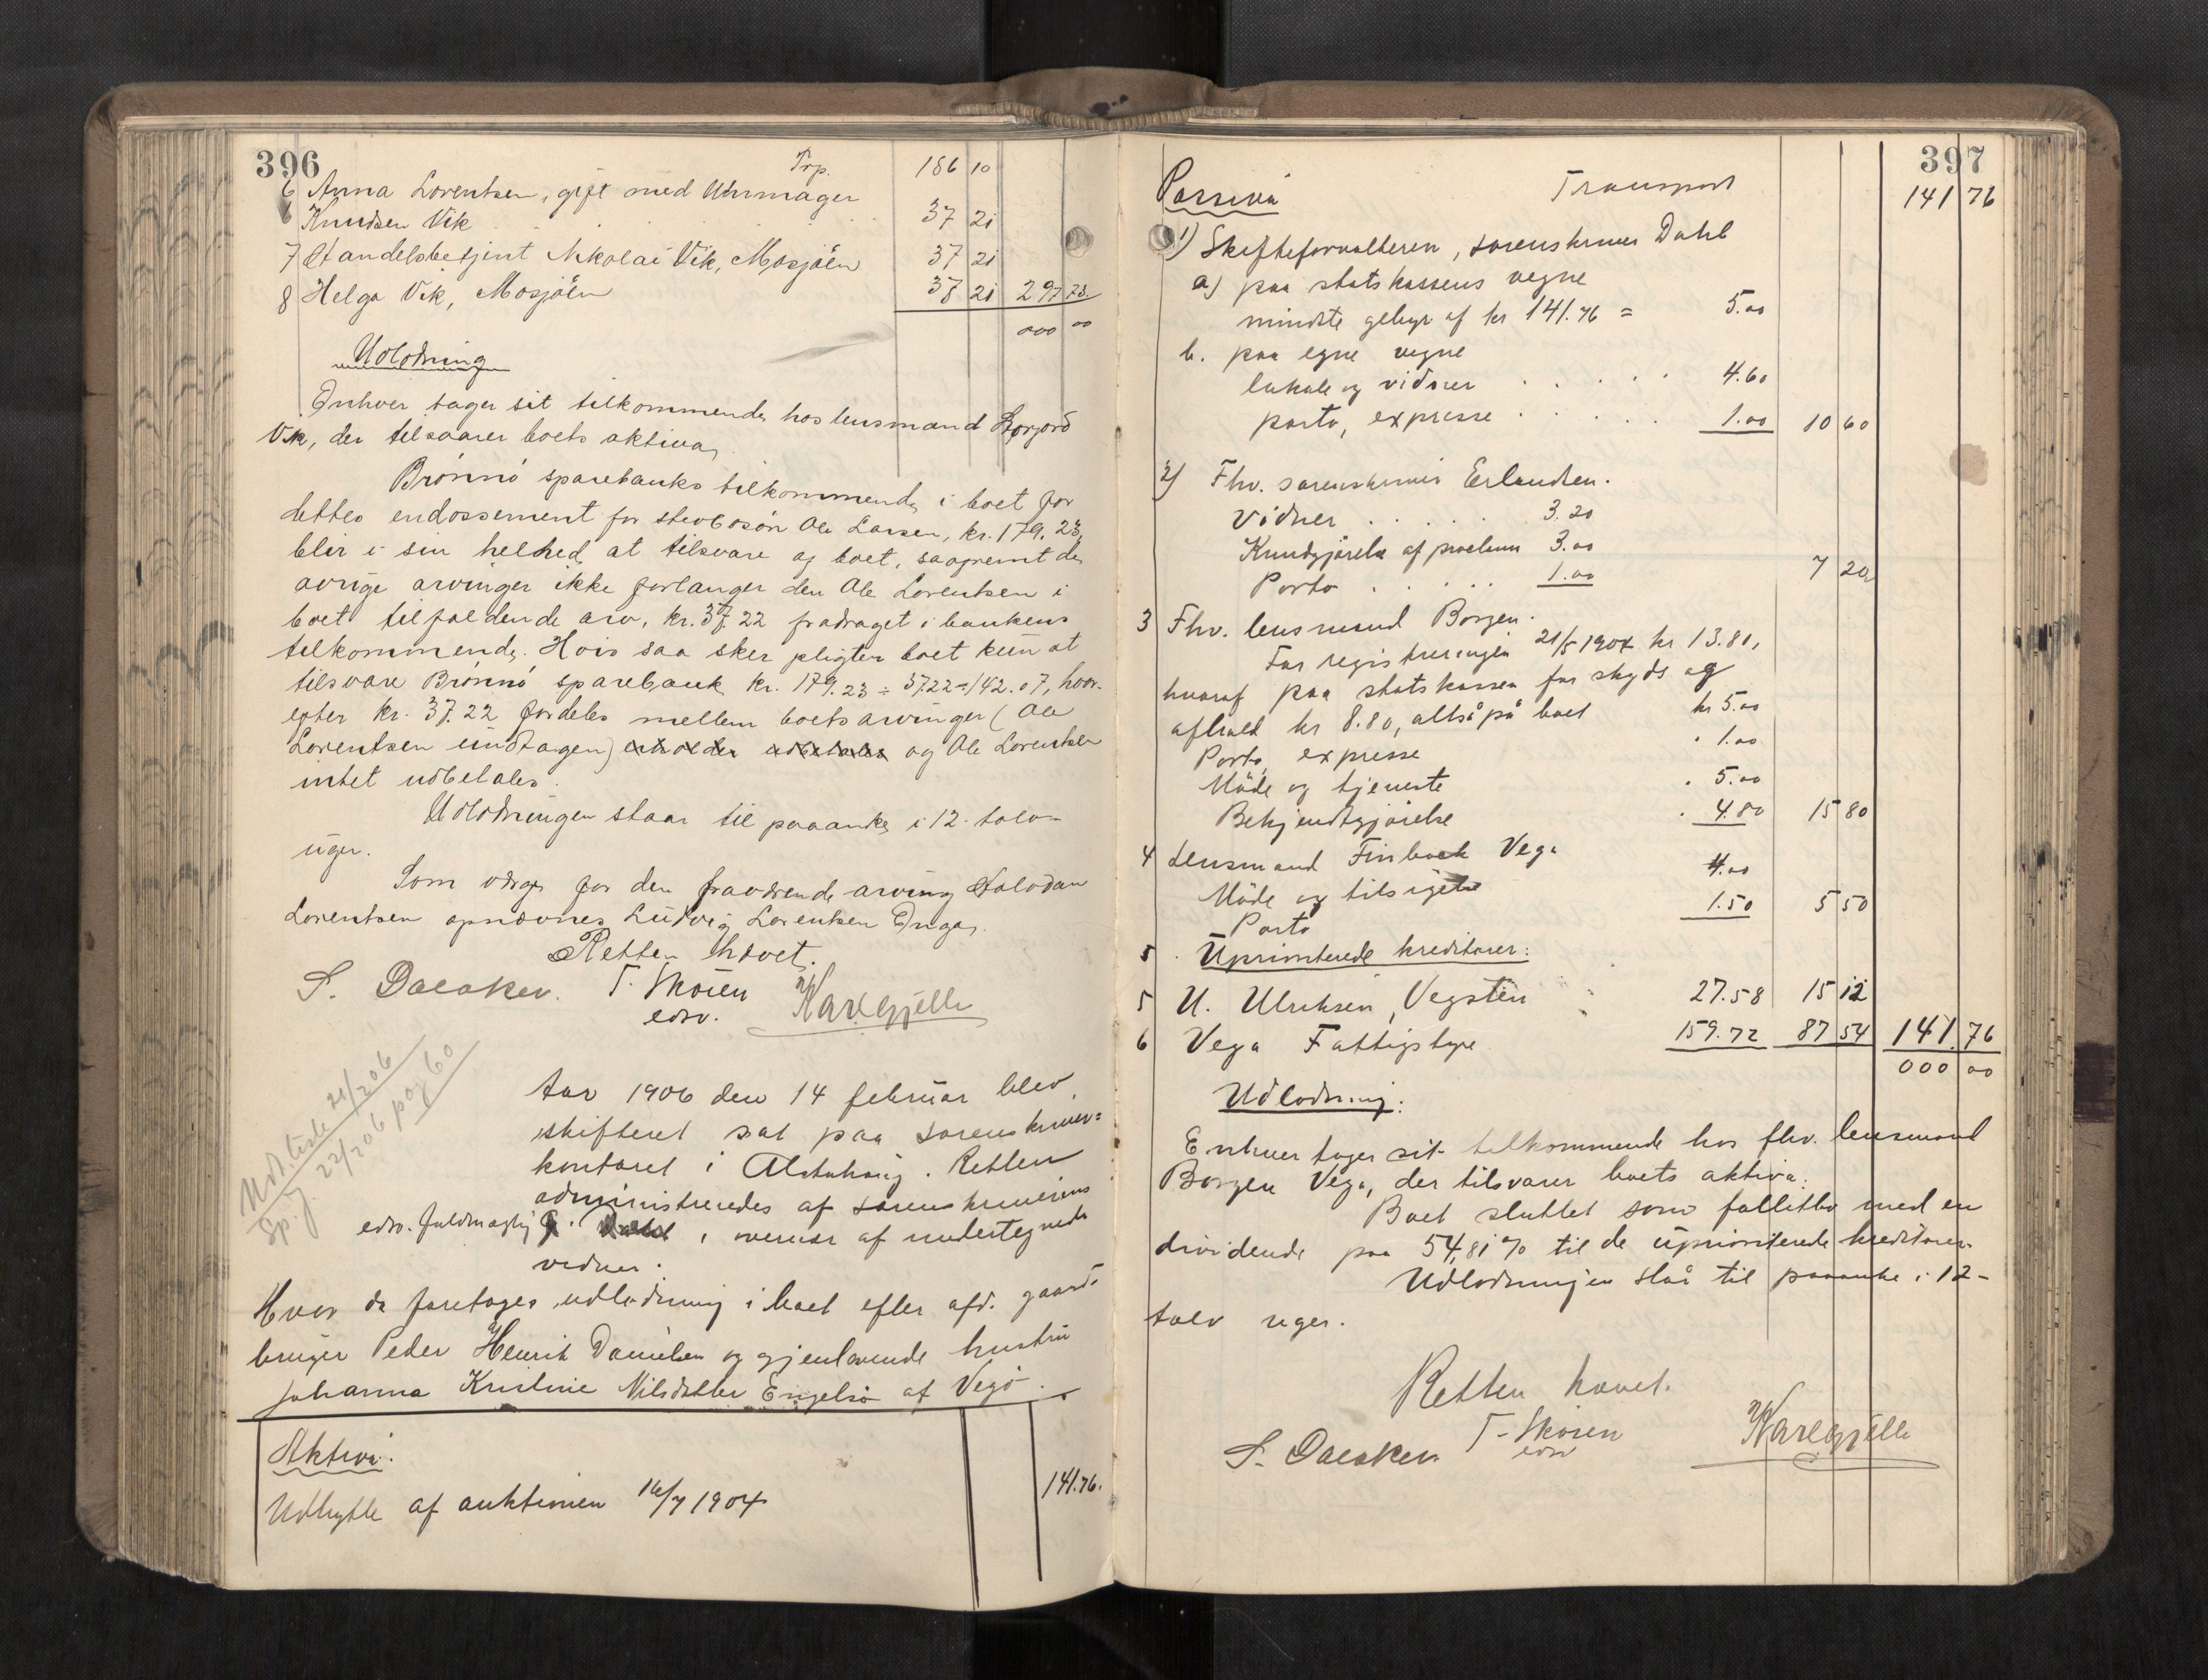 396
Trp. 186 10
6 Anna Lorentsen, gift med Uhrmager
Knudsen Vik 37 21
7 Handelsbetjent Nikolai Vik, Mosjöen 37 21
8 Helga Vik, Mosjöen 37 21 297 73.
000 00
Udlodning
Enhver tager sit tilkommende hos lensmand
Vik, der tilsvarer boets aktiva.
Brönnö sparebanks tilkommende i boet for
dettes endossement for sterbosön Ole Larsen, kr. 179.23,
blir i sin helhed at tilsvare af boet, saafremt de
övrige arvinger ikke forlanger den Ole Lorentsen i
boet tilfaldende arv, kr. 37.22 fradraget i bankens
tilkommende. Hvis saa sker pligter boet kun at
tilsvare Brönnö sparebank kr. 179.23 ÷ 37.22 = 142.07, hvor-
efter kr. 37.22 fordeles mellem boets arvinger (Ole
Lorentsen undtagen) og Ole Lorentsen
intet udbetales.
Udlodningen staar til paaanke i 12 - tolv -
uger.
Som værge for den fraværende arving Halvdan
Lorentsen opnævnes Ludvig Lorentsen
Retten hævet.
T. Skören
edsv.
Ud. liste 21/2 06
Sp. j. 22/2 06 pag 60
Aar 1906 den 14 februar blev
skifteret sat paa sorenskriver=
kontoret i Alstahaug. Retten
administreredes af sorenskriverens
edsv. fuldmægtig i overvær af undertegnede
vidner.
Hvor da foretoges udlodning i boet efter afd. gaard-
bruger Peder Henrik Danielsen og gjenlevende hustru
Johanna Kristine Nilsdatter Engelsö af Vegö.
Aktiva.
Udbytte af auktionen 16/7 1904 141.76.
397
Passiva Transport 141 76
1) Skifteforvalteren, sorenskriver Dahl
a) paa statskassens vegne
mindste gebyr af kr 141.76 = 5.00
b. paa egne vegne
lokale og vidner . . . . . 4.60
porto, expresse . . . . . 1.00 10 60
2) Fhv. sorenskriver Erlandsen.
Vidner . . . . . 3.20
Kundgjörelse af proclama 3.00
Porto . . . . . 1.00 7 20
3 Fhv. lensmand Borgen.
For registreringen 21/5 1904 kr 13.80,
hvoraf paa statskassen for skyds og
afhold kr 8.80, altså på boet kr 5.00
Porto, expresse " 1.00
Möde og tjeneste " 5.00
Bekjendtgjörelse " 4.80 15 80
4 Lensmand Finbak Vega
Möde og tilsigelse 4.00
Porto 1.50 5 50
5 Upriviterede kreditorer:
5 U. Ulriksen, Vegstein 27.58 15 12
6 Vega Fattigstyre 159.72 87 54 141.76
000 00
Udlodning:
Enhver tager sit tilkommende hos fhv. lensmand
Borgen Vega, der tilsvarer boets aktiva.
Boet sluttet som fallitbo med en
dividende paa 54,81 % til de uprioriterede kreditorer.
Udlodningen står til paaanke i 12 -
tolv uger.
Retten hævet.
T. Skören
edsv